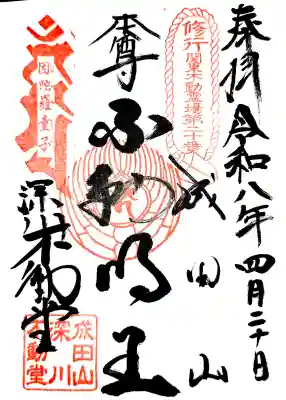 奉拝 令和八年四月二十日
修行
関東不動霊場第二十番
成田山
本尊 不動明王
深川不動堂
因陀羅童子
成田山
深川
不動堂